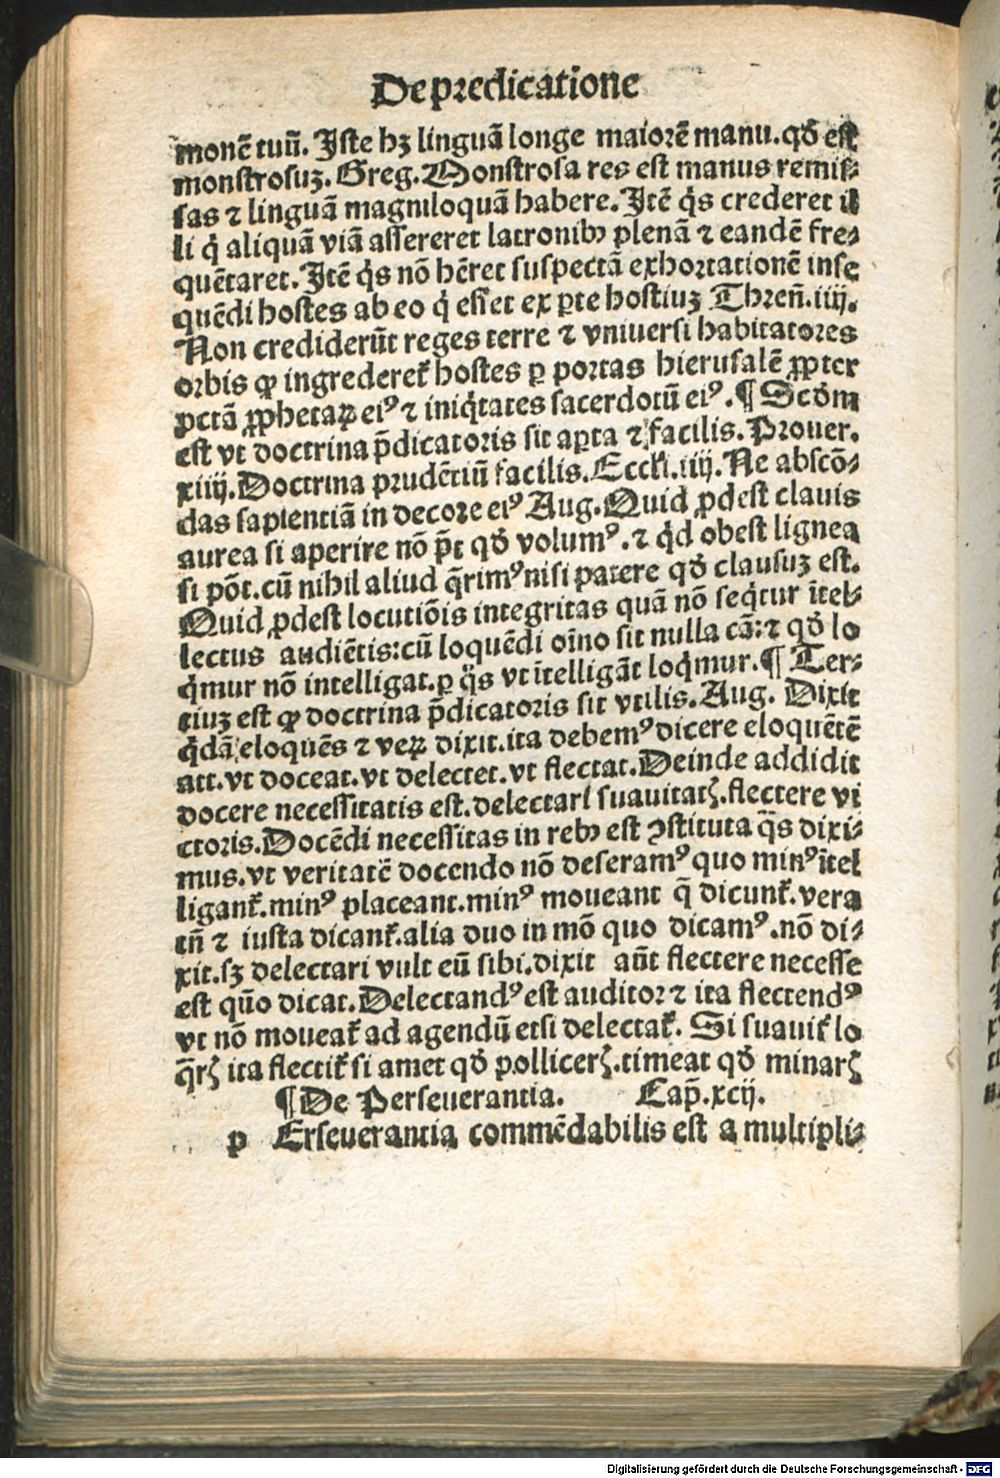 De predicatione
monē tuū. Iste hꝫ linguā longe maiorē manu. qđ est
monstrosuꝫ. Greg. Monstrosa res est manus remiſ⸗
sas ⁊ linguā magniloquā habere. Itē q̇s crederet il
li q̇ aliquā viā assereret latronibꝰ plenā ⁊ eandē fre⸗
quētaret. Itē q̇s nō hēret suspectā exhortationē inse
quēdi hostes ab eo q̇ esset ex ꝑte hostiuꝫ Thren̄. iiij.
Non crediderūt reges terre ⁊ vniuersi habitatores
orbis ꝙ ingrederet᷑ hostes ꝑ portas hierusalē ꝓpter
pctā ꝓphetaꝝ eiꝰ ⁊ iniq̇tates sacerdotū eiꝰ. ¶ Scđm
est vt doctrina p̄dicatoris sit aꝑta ⁊ facilis. Prouer.
xiiij. Doctrina prudētiū facilis. Eccli. iiij. Ne abscō⸗
das sapientiā in decore eiꝰ Aug. Quid ꝓdest clauis
aurea si aperire nō p̄t qđ volumꝰ. ⁊ q̇d obest lignea
si pōt. cū nihil aliud q̄rimꝰ nisi patere qđ clausuꝫ est.
Quid ꝓdest locutiōis integritas quā nō seq̇tur ītel⸗
lectus audiētis: cū loquēdi oīno sit nulla cā: ⁊ qđ lo
q̇mur nō intelligat. ꝑ q̄s vt ītelligāt loq̇mur. ¶ Ter⸗
tiuꝫ est ꝙ doctrina p̄dicatoris sit vtilis. Aug. Dixit
q̇dā eloquēs ⁊ veꝝ dixit. ita debemꝰ dicere eloquētē
att. vt doceat. vt delectet. vt flectat. Deinde addidit
docere necessitatis est. delectari suauitatꝭ. flectere vi
ctoris. Docēdi necessitas in rebꝰ est ꝯstituta q̄s dixi⸗
mus. vt veritatē docendo nō deseramꝰ quo minꝰ ītel
ligant᷑. minꝰ placeant. minꝰ moueant q̄ dicunt᷑. vera
tn̄ ⁊ iusta dicant᷑. alia duo in mō quo dicamꝰ. nō di⸗
xit. sꝫ delectari vult eū sibi. dixit aūt flectere necesse
est quō dicat. Delectandꝰ est auditor ⁊ ita flectendꝰ
vt nō moueat᷑ ad agendū etsi delectat᷑. Si suauit᷑ lo
q̄rꝭ ita flectit᷑ si amet qđ pollicerꝭ. timeat qđ minarꝭ
¶ De Perseuerantia. Cap̄. xcij.
p Erseuerantia commēdabilis est a multipli⸗
Digitalisierung gefördert durch die Deutsche Forschungsgemeinschaft - DFG